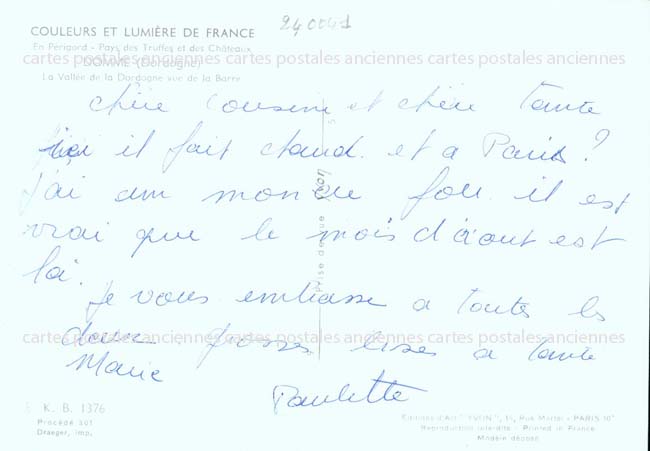 240041
COULEURS ET LUMIÈRE DE FRANCE
En Périgord - Pays des Truffes et des Châteaux
cartes postales anciennes cartes postales anciennes cartes postales anciennes
DOMME (Dordogne)
La Vallée de la Dordogne vue de la Barre
chère Cousine et chère Tante
ici il fait chaud. et a Paris?
j'ai un monde fou. il est
vrai que le mois d'aout est
là.
Je vous embrasse a toutes les
deux grosses bises a tante
cartes postales anciennes cartes postales anciennes cartes postales anciennes
Marie
Paulette
Prise de vue Yvon
K. B. 1376
Procédé 301
Draeger, imp.
Editions d'Art "YVON", 15, Rue Martel - PARIS 10e
Reproduction interdite - Printed in France
Modèle déposé